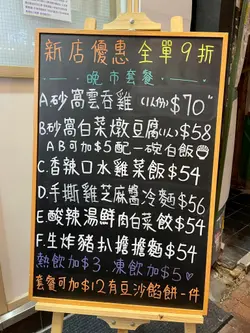 新店優惠 全單9折
晚市套餐
A.砂窩雲吞雞(1人份)$70
B.砂窩白菜燉豆腐(1人)$58
AB可加$5配一碗白飯
C.香辣口水雞菜飯$54
D.手撕雞芝麻醬冷麵$56
E.酸辣湯鮮肉白菜餃$54
F.生炸豬扒擔擔麵$54
熱飲加$3.凍飲加$5
套餐可加$12有豆沙餡餅一件